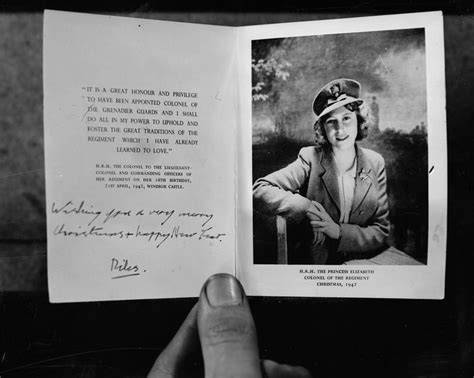 "IT IS A GREAT HONOUR AND PRIVILEGE
TO HAVE BEEN APPOINTED COLONEL OF
THE GRENADIER GUARDS AND I SHALL
DO ALL IN MY POWER TO UPHOLD AND
FOSTER THE GREAT TRADITIONS OF THE
REGIMENT WHICH I HAVE ALREADY
LEARNED TO LOVE."
H.R.H. THE COLONEL TO THE LIEUTENANT-
COLONEL AND COMMANDING OFFICERS OF
HER REGIMENT ON HER 16TH BIRTHDAY,
21ST APRIL, 1942, WINDSOR CASTLE.
Wishing you a very merry
Christmas & happy New Year.
H.R.H. THE PRINCESS ELIZABETH
COLONEL OF THE REGIMENT
CHRISTMAS, 1942